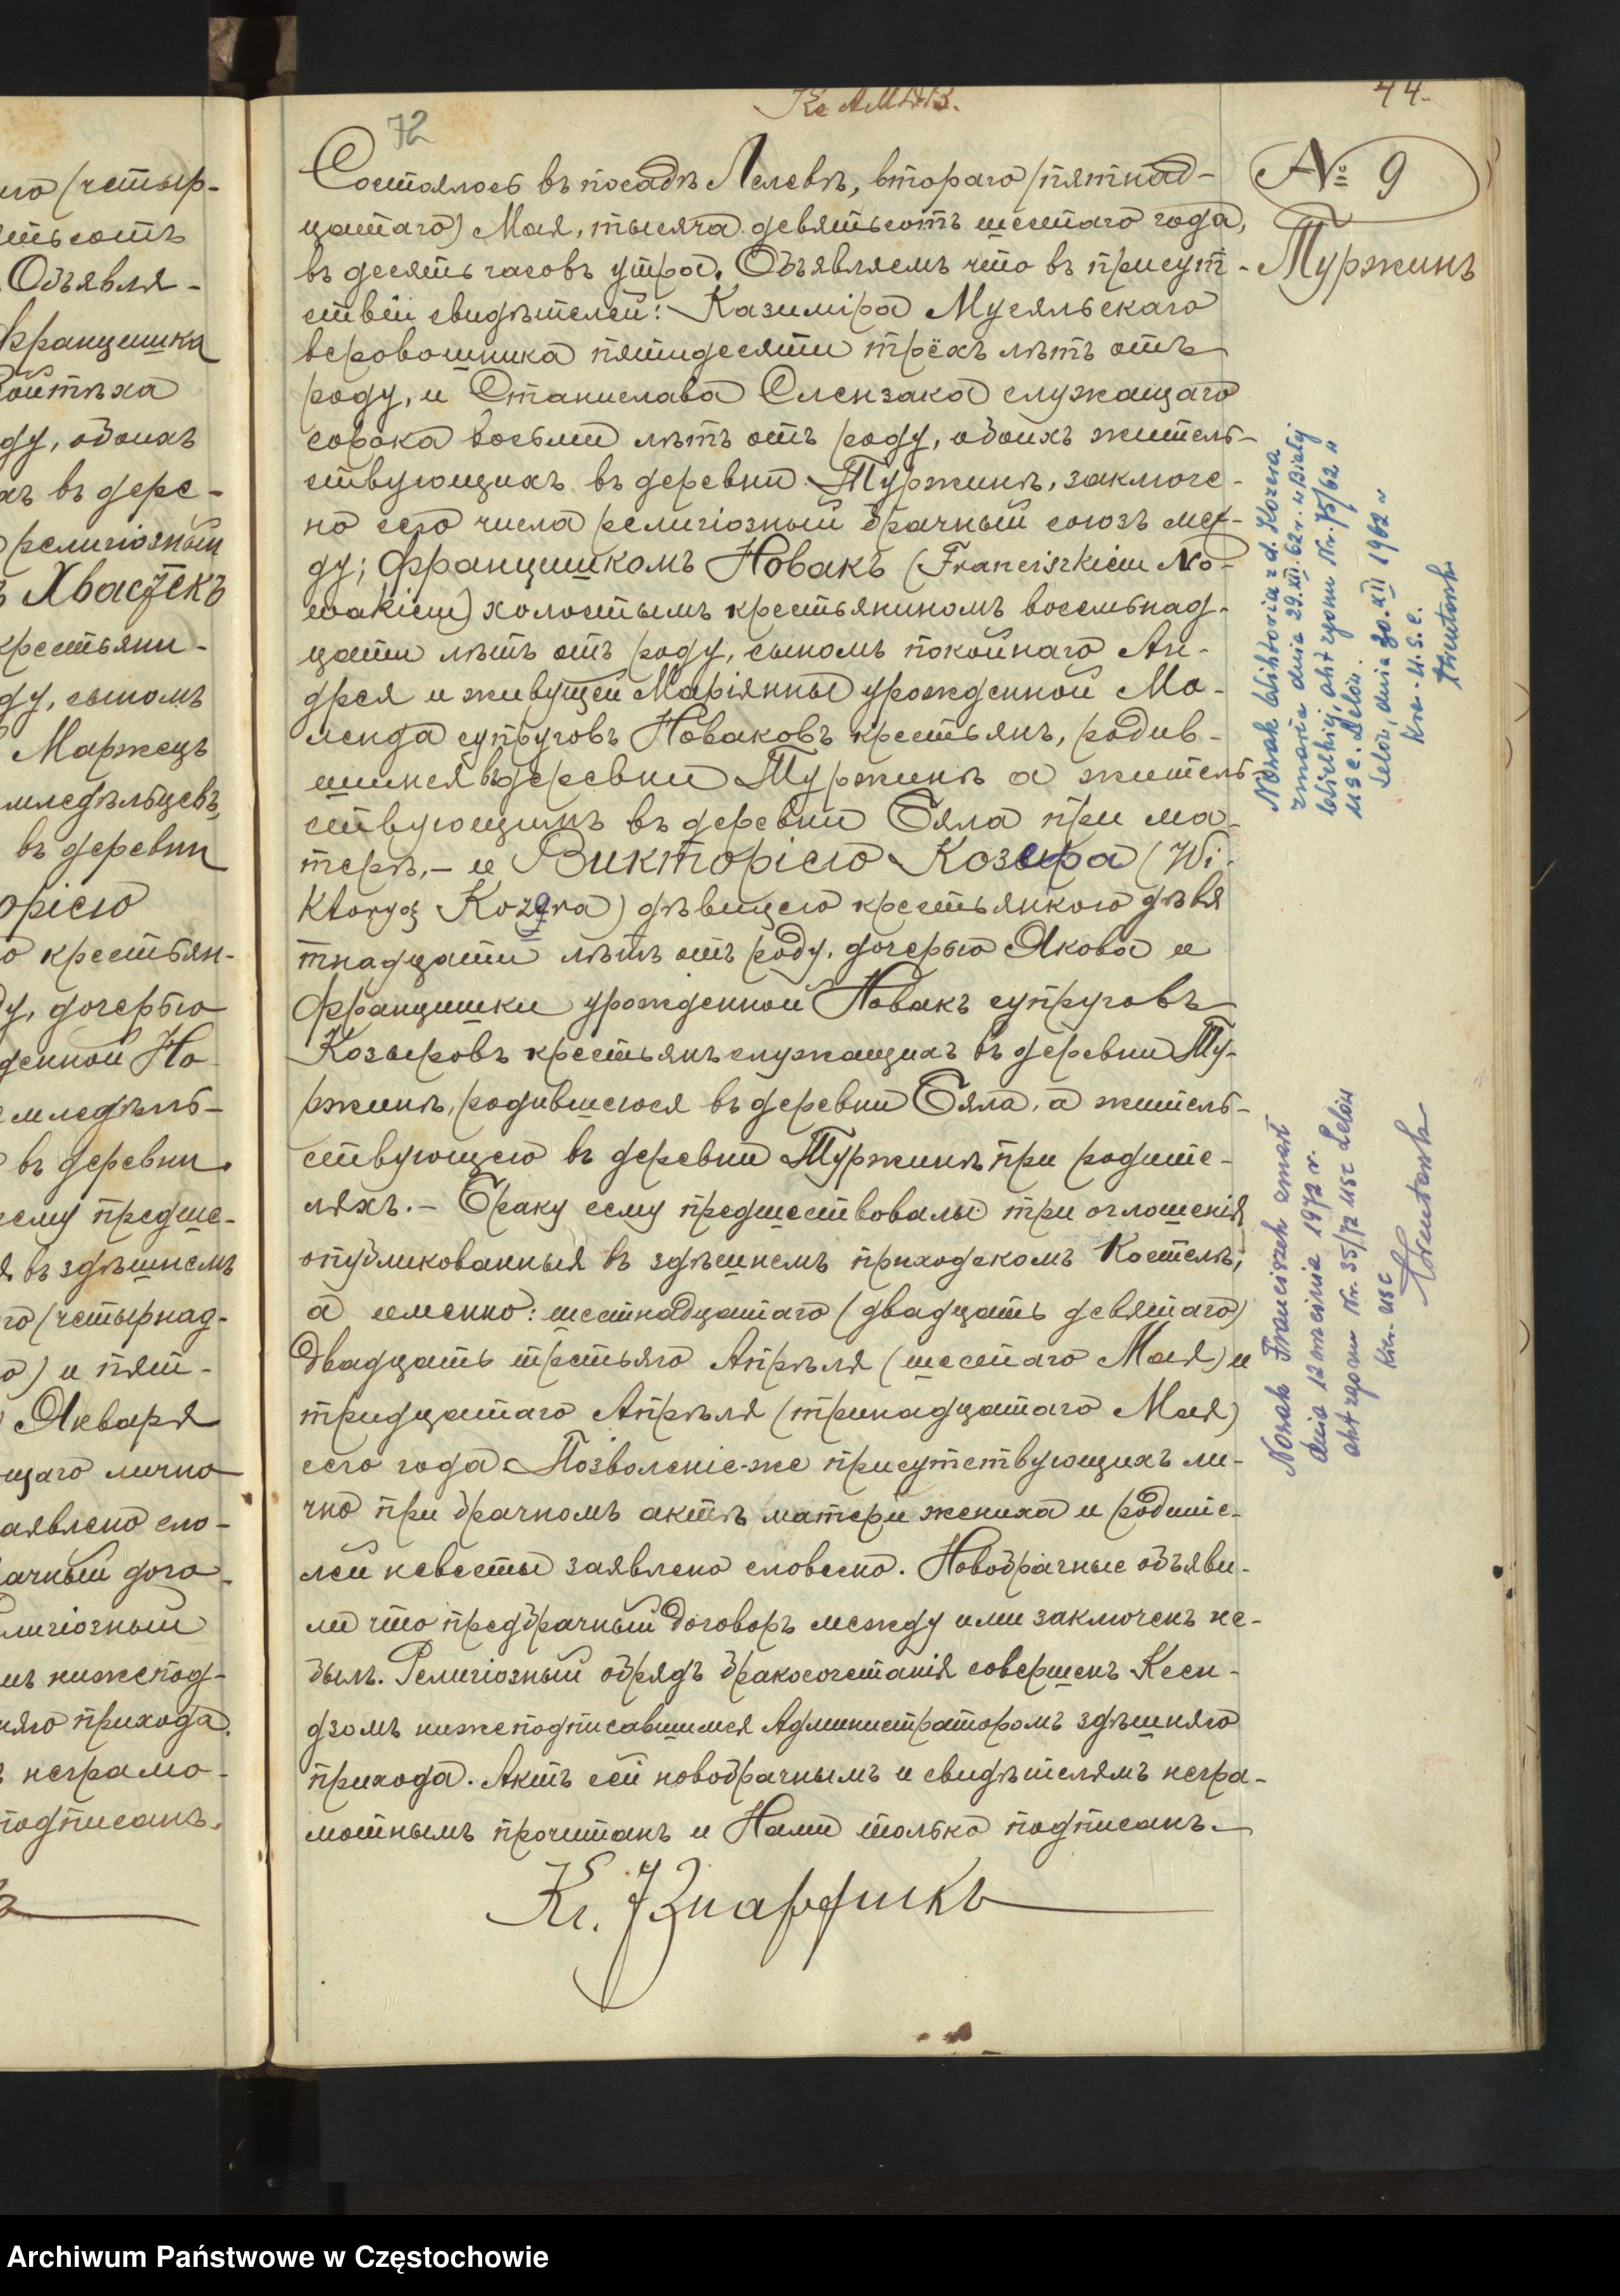 44.
72
№ 9
Туржинъ
Состоялось въ посадѣ Лелевѣ, втораго (пятнад-
цатаго) Мая, тысяча девятьсотъ шестаго года,
въ десять часовъ утра. Объявляемъ что въ присут-
ствіи свидѣтелей: Казиміра Мусяльскаго
веровошника пятидесяти трёхъ лѣтъ отъ
роду, и Станислава Слензака служащаго
сорока восьми лѣтъ отъ роду, обоихъ житель-
ствующихъ въ деревни Туржинѣ, заключе-
но сего числа религіозный брачный союзъ меж-
ду; Францишкомъ Новакъ (Franciszkiem No-
wakiem) холостымъ крестьяниномъ восемьнад-
цати лѣтъ отъ роду, сыномъ покойнаго Ан-
дрея и живущей Маріянны урожденной Ма-
ленда супруговъ Новаковъ крестьянъ, родив-
шимся въ деревни Туржинѣ а житель-
ствующимъ въ деревни Бяла при ма-
терѣ,- и Викторіею Козера (Wi-
ktoryą Kozera) дѣвицею крестьянкою девя
тнадцати лѣтъ отъ роду, дочерью Якова и
Францишки урожденной Новакъ супруговъ
Козыровъ крестьянъ служащихъ въ деревни Ту-
ржинѣ, родившеюся въ деревни Бяла, а житель-
ствующею въ деревни Туржинѣ при родите-
ляхъ.- Браку сему предшествовалы три оглошенія
опубликованныя въ здѣшнемъ приходскомъ Костелѣ,
а именно: шестнадцатаго (двадцать девятаго)
двадцать третьяго Апрѣля (шестаго Мая) и
тридцатаго Апрѣля (тринадцатаго Мая)
сего года Позволеніе-же присутствующихъ ли-
чно при брачномъ актѣ матери жениха и родите-
лей невесты заявлено словесно. Новобрачные объяви-
ли что предбрачный договоръ между ими заключенъ не-
былъ. Религіозный обрядъ бракосочетанія совершенъ Ксен-
дзомъ нижеподписавшимся Администраторомъ здѣшняго
прихода. Актъ сей новобрачнымъ и свидѣтелямъ негра-
мотнымъ прочитанъ и Нами только подписанъ.
Nowak Wiktoria z d. Kozera
zmarła dnia 29.XII.62 r. w Białej
Wielkiej, akt zgonu Nr. 75/62 "
USC. Lelów.
Lelów, dnia 30.XII 1962 r
Kier. U.S.C.
Nowak Franciszek zmarł
dnia 12 września 1972 r.
akt zgonu Nr. 35/72 USC Lelów
Kier. USC
ого (четыр-
ятьсотъ
Объявля-
Францишка
Войтѣха
ду, обоихъ
хъ въ дере-
религіозный
Хвастекъ
крестьяни-
ду, сыномъ
Маржецъ
мледѣльцевъ,
въ деревни
оріею
крестьян-
у, дочерью
денной Но
емледѣль-
въ деревни
сему предше-
я въ здѣшнемъ
го (четырнад-
о) и пят-
Января
щаго лично
аявлено сло-
ачный дого-
лигіозный
мъ нижепод-
няго прихода.
неграмо-
подписанъ.
Archiwum Państwowe w Częstochowie